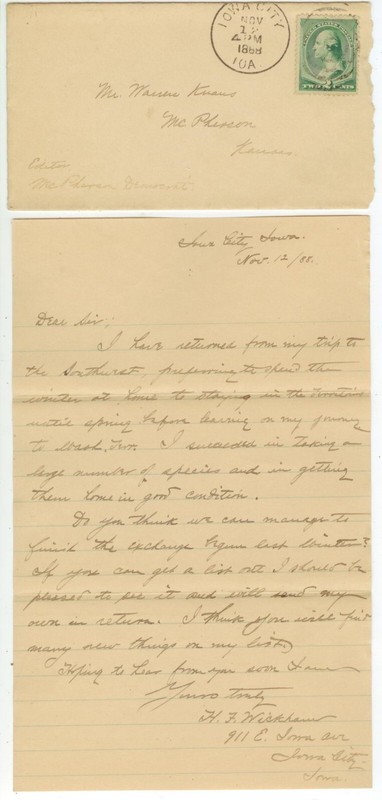 IOWA CITY
NOV
12
4 PM
1888
IOA.
UNITED STATES POSTAGE
2
TWO CENTS
Mr. Warren Knaus
McPherson
Kansas.
Editor
McPherson Democrat.
Iowa City Iowa.
Nov. 12/88.
Dear Sir;
I have returned from my trip to
the Southwest, preferring to spend the
winter at home to staying in the mountains
until spring before leaving on my journey
to Wash. Terr. I succeeded in taking a
large number of species and in getting
them home in good condition.
Do you think we can manage to
finish the exchange begun last winter?
If you can get a list out I should be
pleased to see it and will send my
own in return. I think you will find
many new things on my list.
Hoping to hear from you soon I am
Yours truly
H. F. Wickham
911 E. Iowa Ave
Iowa City.
Iowa.